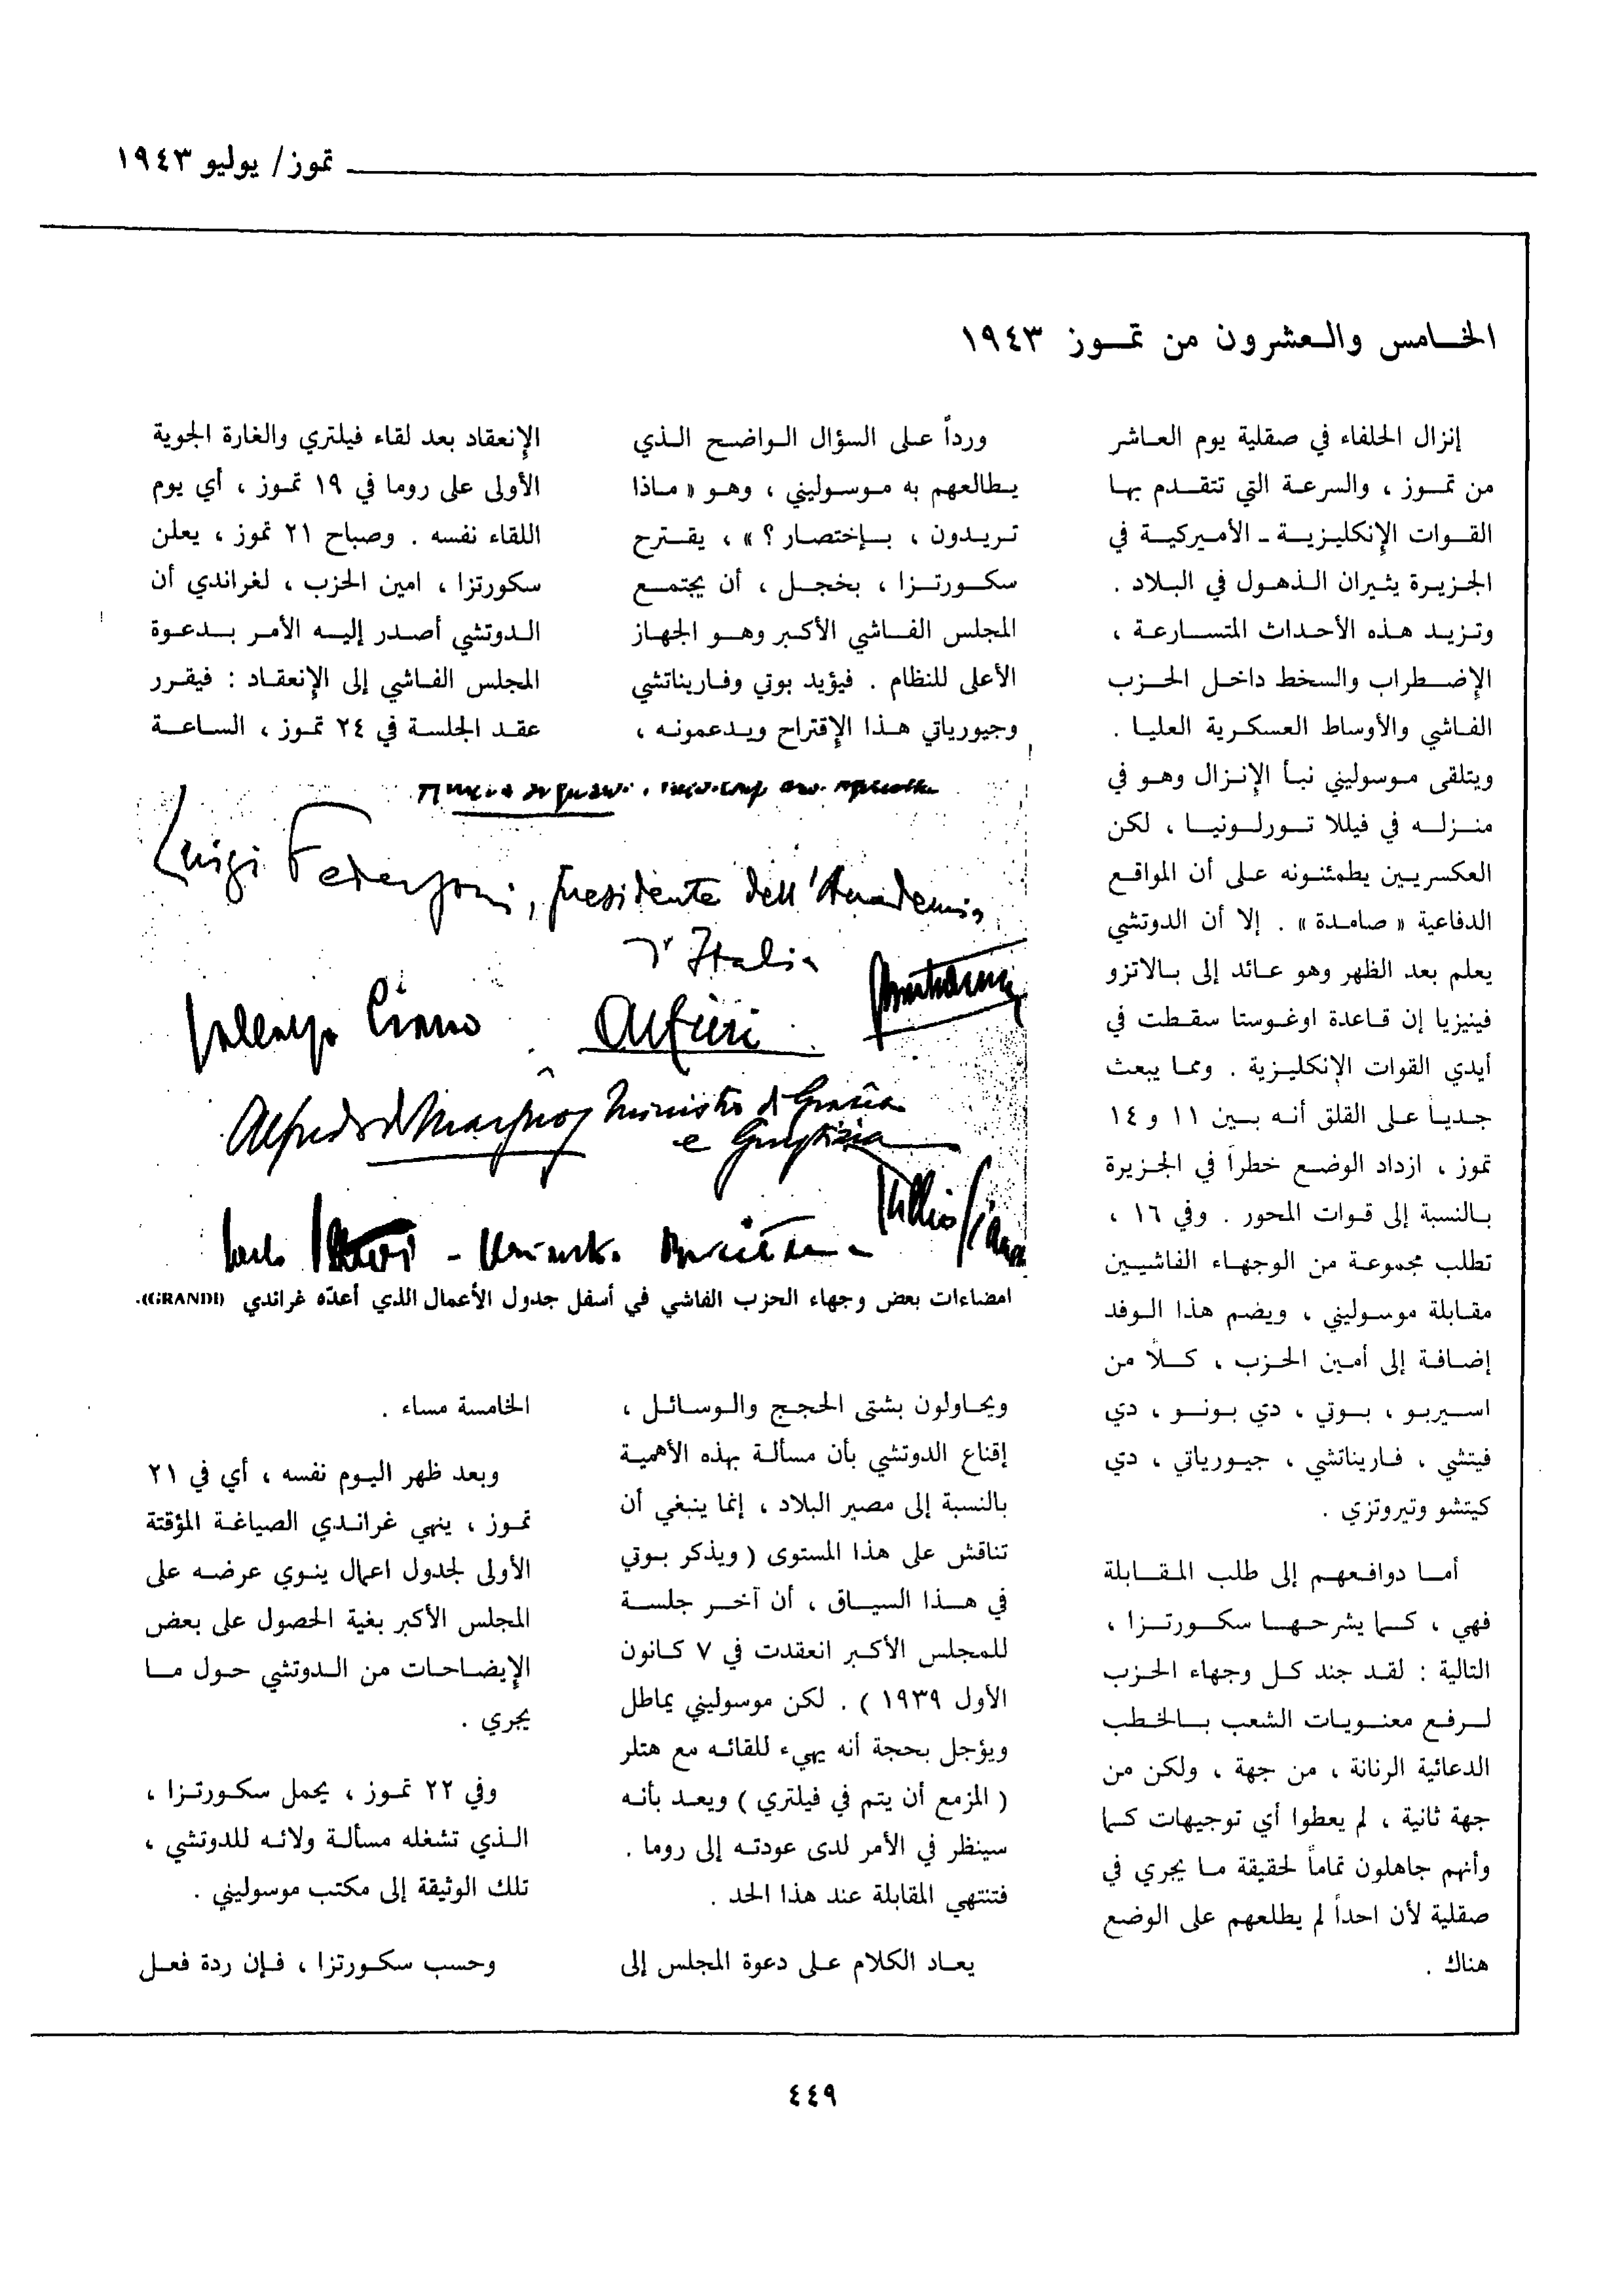 تموز/ يوليو ١٩٤٣
الخامس والعشرون من تموز ١٩٤٣
إنزال الحلفاء في صقلية يوم العاشر
من تموز ، والسرعة التي تتقدم بها
القوات الإنكليزية - الأميركية في
الجزيرة يثيران الذهول في البلاد .
وتزيد هذه الأحداث المتسارعة ،
الإضطراب والسخط داخل الحزب
الفاشي والأوساط العسكرية العليا .
ويتلقى موسوليني نبأ الإنزال وهو في
منزله في فيللا تورلونيا ، لكن
العكسريين يطمئنونه على أن المواقع
الدفاعية « صامدة » . إلا أن الدوتشي
يعلم بعد الظهر وهو عائد إلى بالاتزو
فينيزيا إن قاعدة اوغوستا سقطت في
أيدي القوات الإنكليزية . ومما يبعث
جدياً على القلق أنه بين ١١ و ١٤
تموز ، ازداد الوضع خطراً في الجزيرة
بالنسبة إلى قوات المحور . وفي ١٦ ،
تطلب مجموعة من الوجهاء الفاشيين
مقابلة موسوليني ، ويضم هذا الوفد
إضافة إلى أمين الحزب ، كلاً من
اسيربو ، بوتي ، دي بونو ، دي
فيتشي ، فاريناتشي ، جيورياتي ، دي
كيتشو وتيروتزي .
أما دوافعهم إلى طلب المقابلة
فهي ، كما يشرحها سكورتزا ،
التالية : لقد جند كل وجهاء الحزب
لرفع معنويات الشعب بالخطب
الدعائية الرنانة ، من جهة ، ولكن من
جهة ثانية ، لم يعطوا أي توجيهات كما
وأنهم جاهلون تماماً لحقيقة ما يجري في
صقلية لأن احداً لم يطلعهم على الوضع
هناك .
ورداً على السؤال الواضح الذي
يطالعهم به موسوليني ، وهو « ماذا
تريدون ، بإختصار ؟ » ، يقترح
سكورتزا ، بخجل ، أن يجتمع
المجلس الفاشي الأكبر وهو الجهاز
الأعلى للنظام . فيؤيد بوتي وفاريناتشي
وجيورياتي هذا الإقتراح ويدعمونه ،
ويحاولون بشتى الحجج والوسائل ،
إقناع الدوتشي بأن مسألة بهذه الأهمية
بالنسبة إلى مصير البلاد ، إنما ينبغي أن
تناقش على هذا المستوى ( ويذكر بوتي
في هذا السياق ، أن آخر جلسة
للمجلس الأكبر انعقدت في ٧ كانون
الأول ١٩٣٩ ) . لكن موسوليني يماطل
ويؤجل بحجة أنه يهيء للقائه مع هتلر
( المزمع أن يتم في فيلتري ) ويعد بأنه
سينظر في الأمر لدى عودته إلى روما .
فتنتهي المقابلة عند هذا الحد .
يعاد الكلام على دعوة المجلس إلى
الإنعقاد بعد لقاء فيلتري والغارة الجوية
الأولى على روما في ١٩ تموز ، أي يوم
اللقاء نفسه . وصباح ٢١ تموز ، يعلن
سكورتزا ، امين الحزب ، لغراندي أن
الدوتشي أصدر إليه الأمر بدعوة
المجلس الفاشي إلى الإنعقاد : فيقرر
عقد الجلسة في ٢٤ تموز ، الساعة
الخامسة مساء .
وبعد ظهر اليوم نفسه ، أي في ٢١
تموز ، ينهي غراندي الصياغة المؤقتة
الأولى لجدول اعمال ينوي عرضه على
المجلس الأكبر بغية الحصول على بعض
الإيضاحات من الدوتشي حول ما
يجري .
وفي ٢٢ تموز ، يحمل سكورتزا ،
الذي تشغله مسألة ولائه للدوتشي ،
تلك الوثيقة إلى مكتب موسوليني .
وحسب سكورتزا ، فإن ردة فعل
Luigi Federzoni, presidente dell'Accademia
d'Italia
Ciano Alfieri
Alfredo de Marsico Ministro di Grazia
e Giustizia
Tullio Cianetti
امضاءات بعض وجهاء الحزب الفاشي في أسفل جدول الأعمال الذي أعدّه غراندي (GRANDI).
٤٤٩